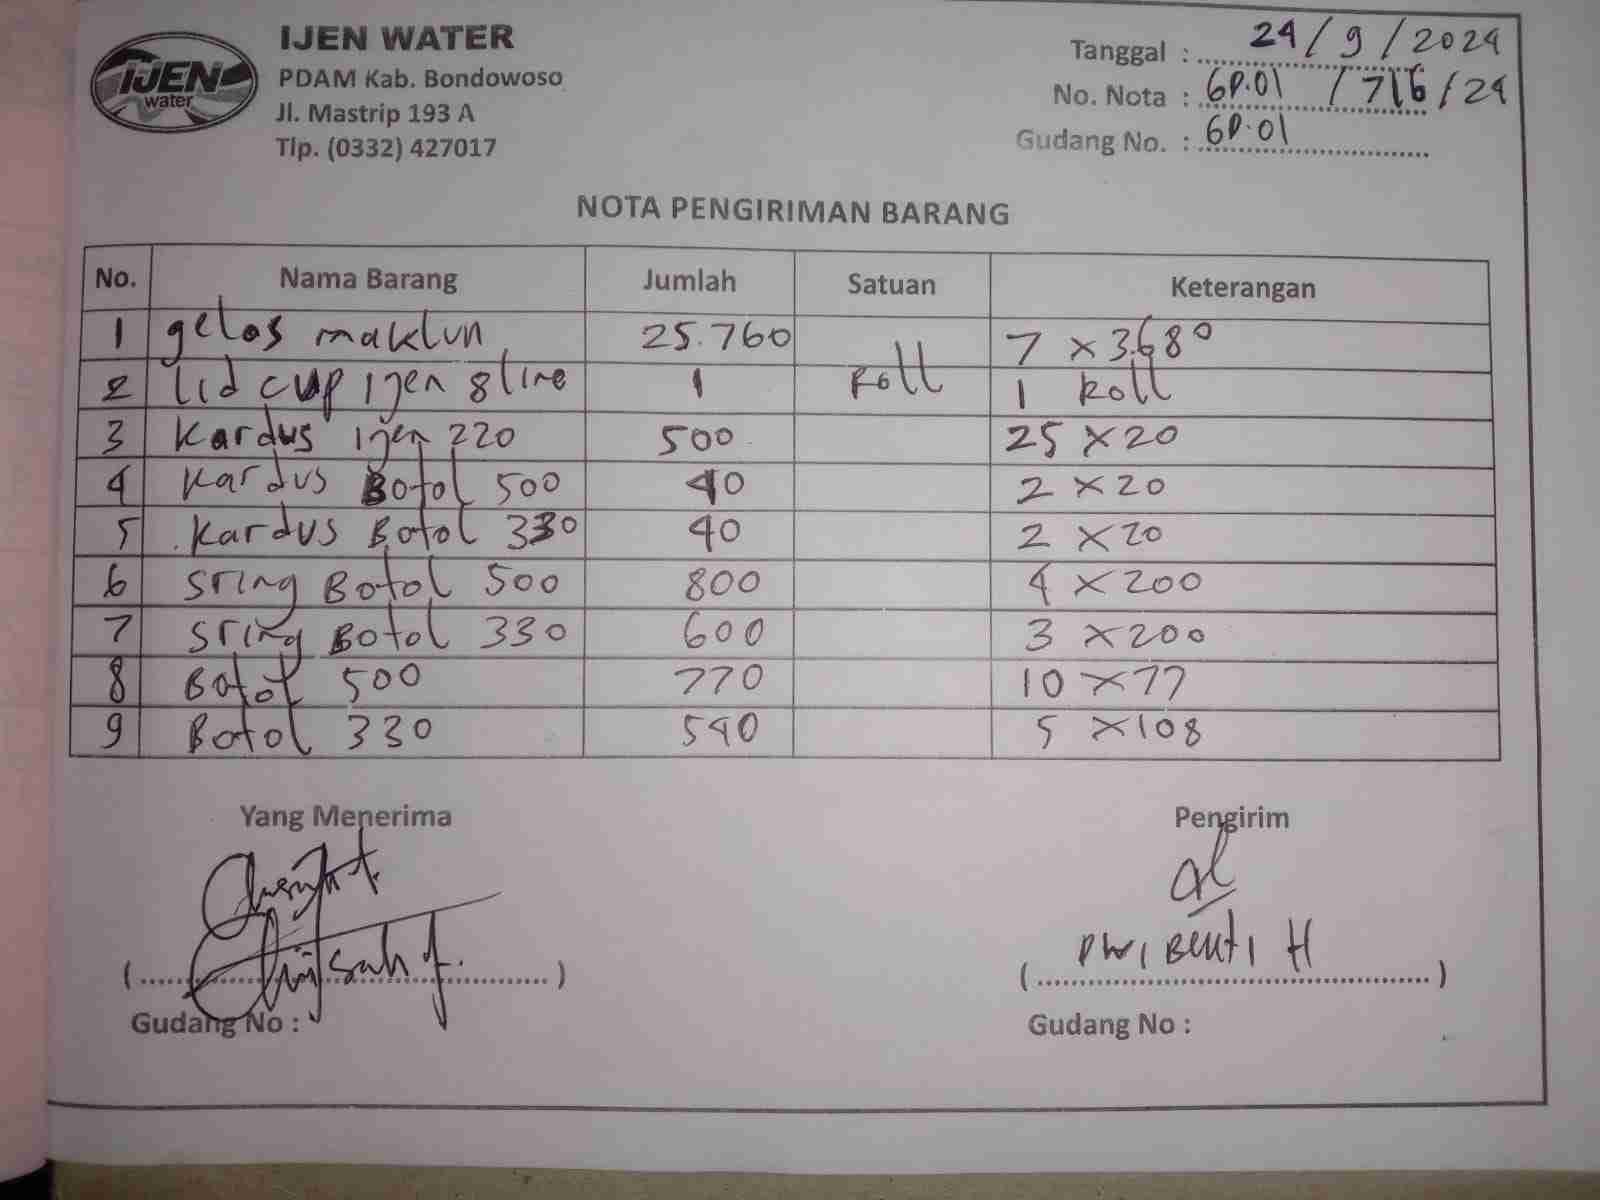 IJEN WATER
IJEN water
PDAM Kab. Bondowoso
Jl. Mastrip 193 A
Tlp. (0332) 427017
Tanggal : 24 / 9 / 2024
No. Nota : GD.01 / 716 / 24
Gudang No. : GD.01
NOTA PENGIRIMAN BARANG
No. Nama Barang Jumlah Satuan Keterangan
1 gelas maklun 25.760 7 x 3.680
2 Lid cup ijen 8 line 1 Roll 1 Roll
3 Kardus ijen 220 500 25 x 20
4 Kardus Botol 500 40 2 x 20
5 Kardus Botol 330 40 2 x 20
6 Sring Botol 500 800 4 x 200
7 Sring Botol 330 600 3 x 200
8 Botol 500 770 10 x 77
9 Botol 330 540 5 x 108
Yang Menerima Pengirim
(..........) (..........)
Gudang No : Gudang No :